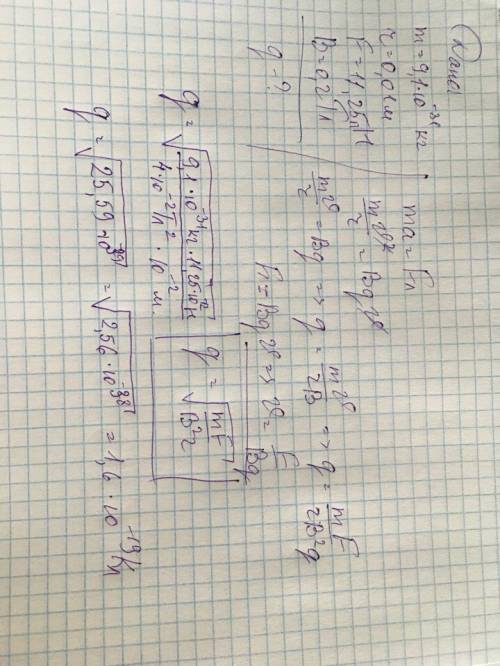 Дано
m = 9,1·10⁻³¹ кг
r = 0,01 м
F = 11,25пН
B = 0,2 Тл
q - ?
ma = Fл
mv²/r = Bqv
mv/r = Bq => q = mv/rB => q = mF/rB²q
Fл = Bqv => v = F/Bq
q = √(mF/B²r)
q = √(9,1·10⁻³¹ кг · 11,25·10⁻¹² Н / 4·10⁻² Тл² · 10⁻² м.)
q = √(25,59·10⁻³⁹) = √(2,56·10⁻³⁸) = 1,6·10⁻¹⁹ Кл